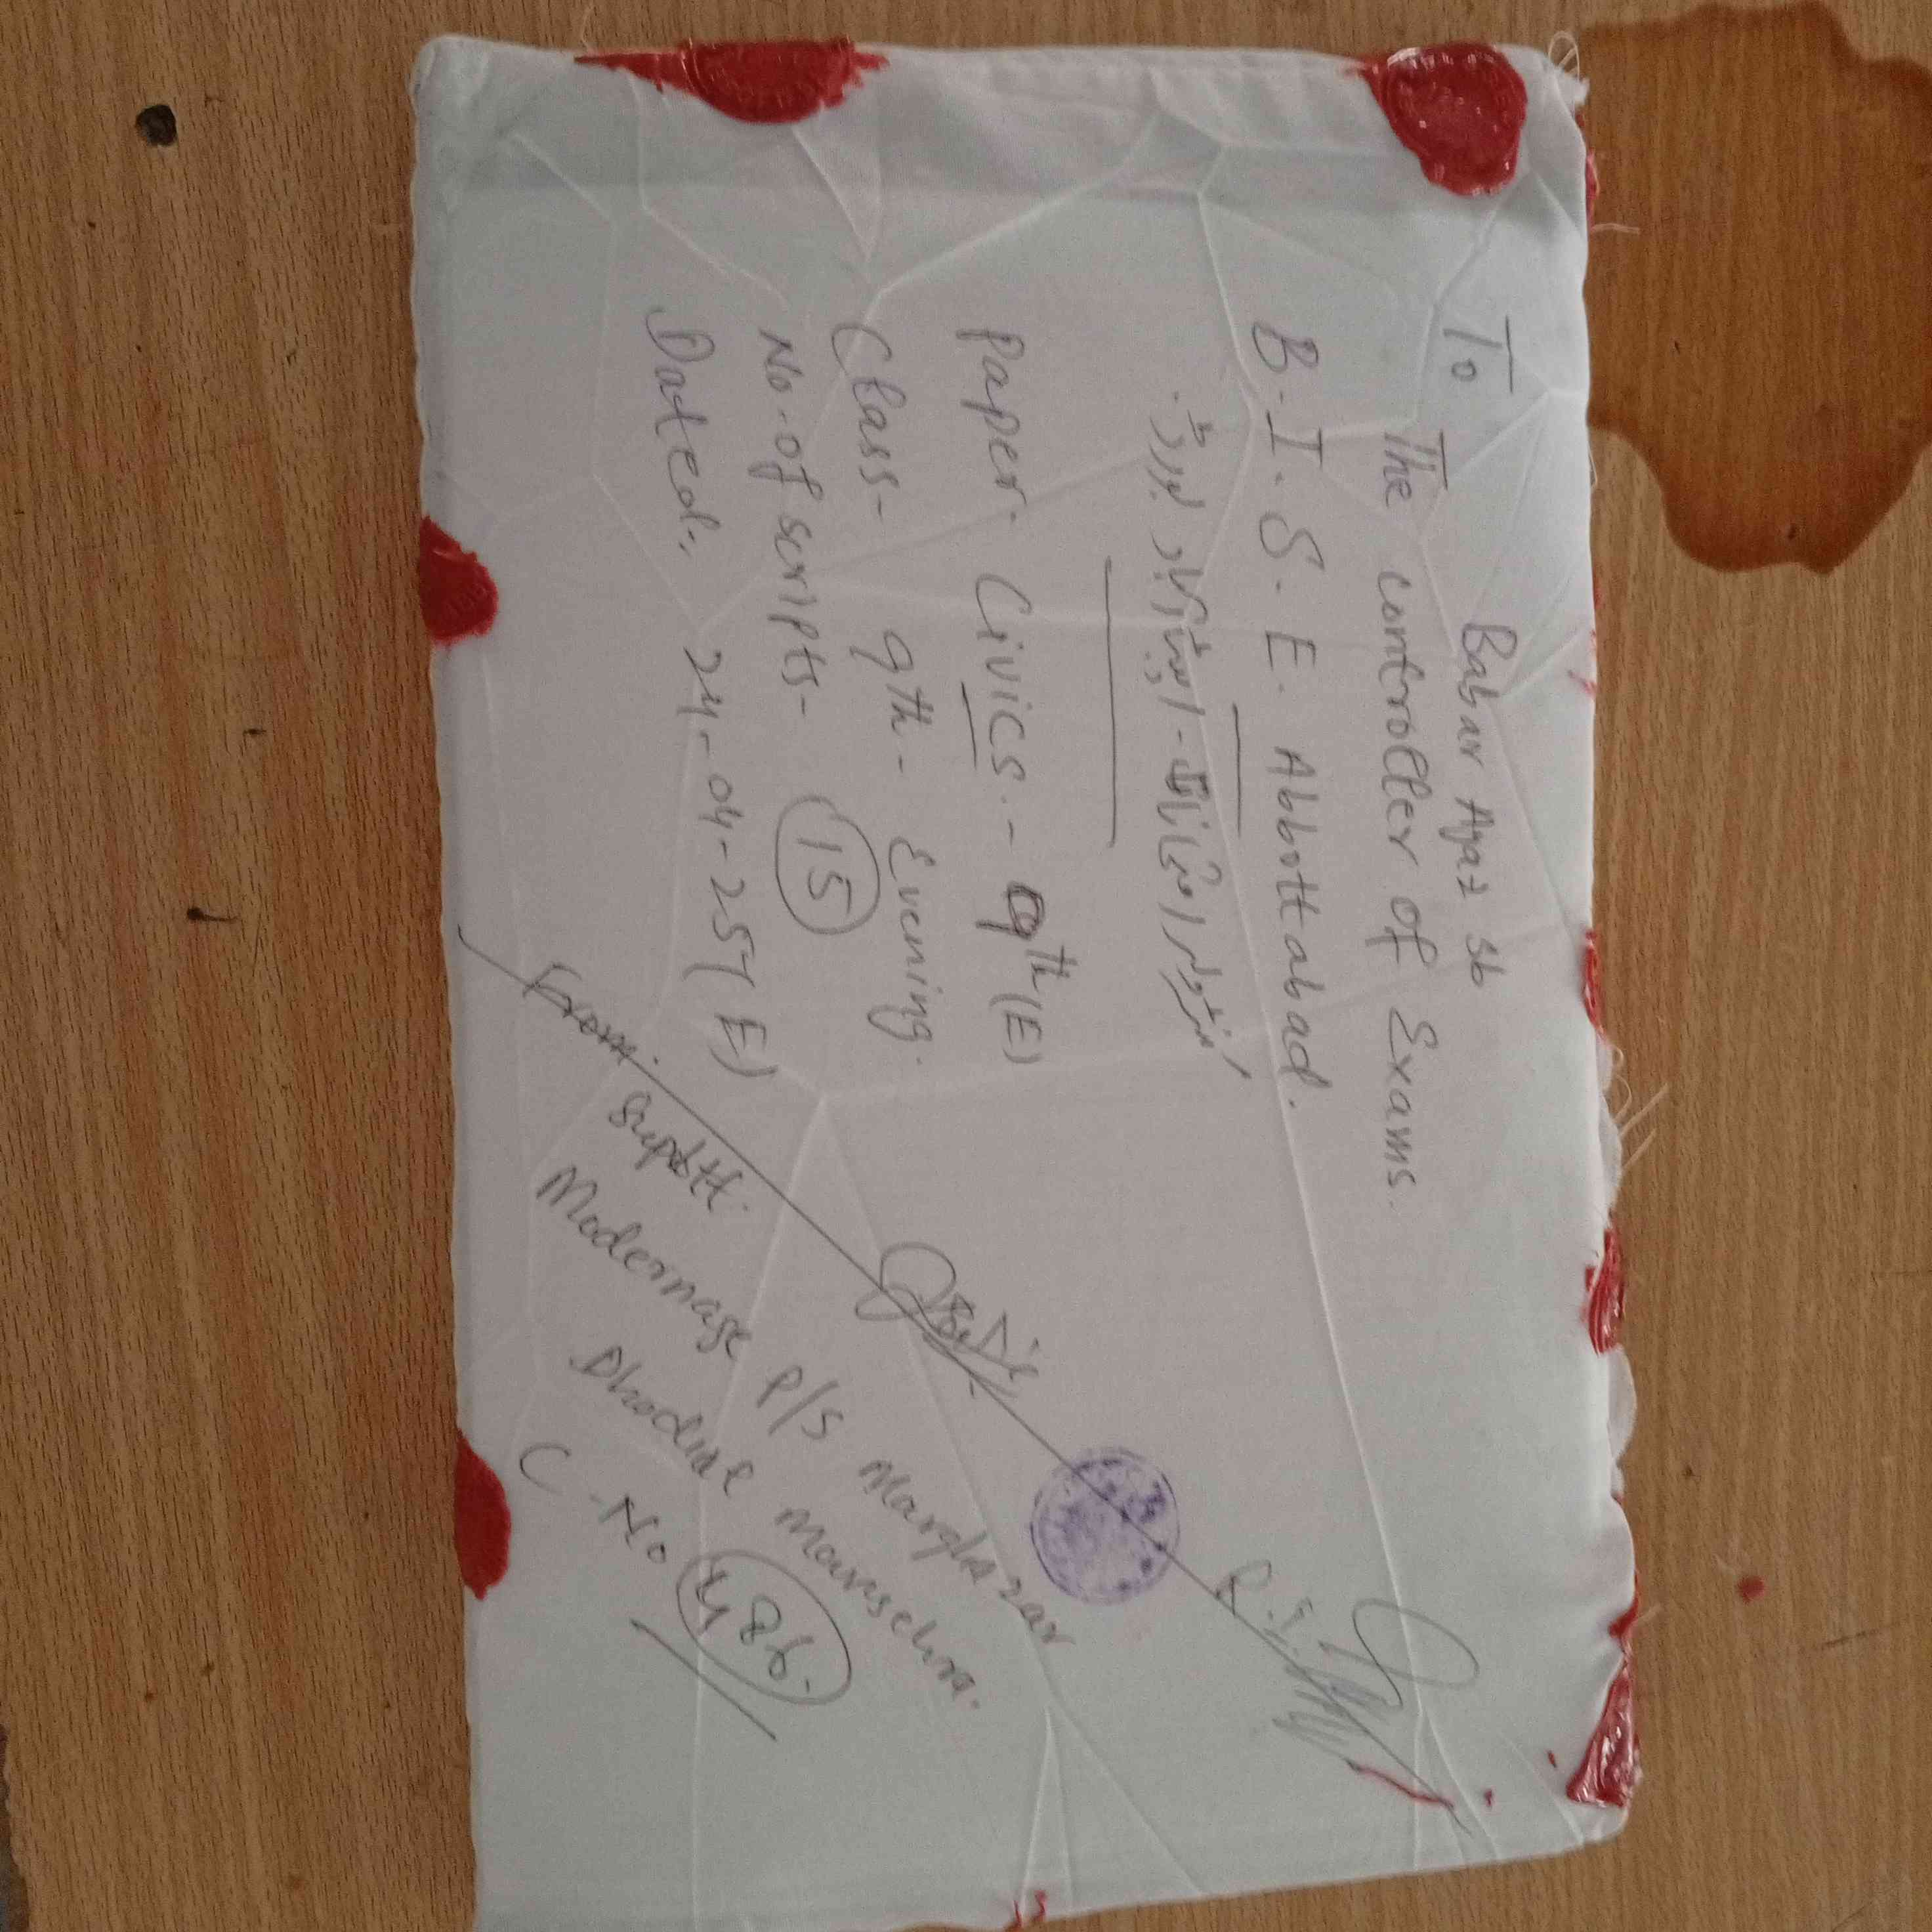 Babar Ayaz Sb
To The controller of Exams.
B.I.S.E. Abbottabad.
کنٹرولر امتحانات - ایبٹ آباد بورڈ.
Paper. Civics. - 9th (E)
Class- 9th- Evening.
No. of scripts- 15
Dated:. 24-04-25 (E)
From.
Supdtt.
Modernage P/S Marghzar
Dhodial Mansehra.
C.No 486.
R.I.